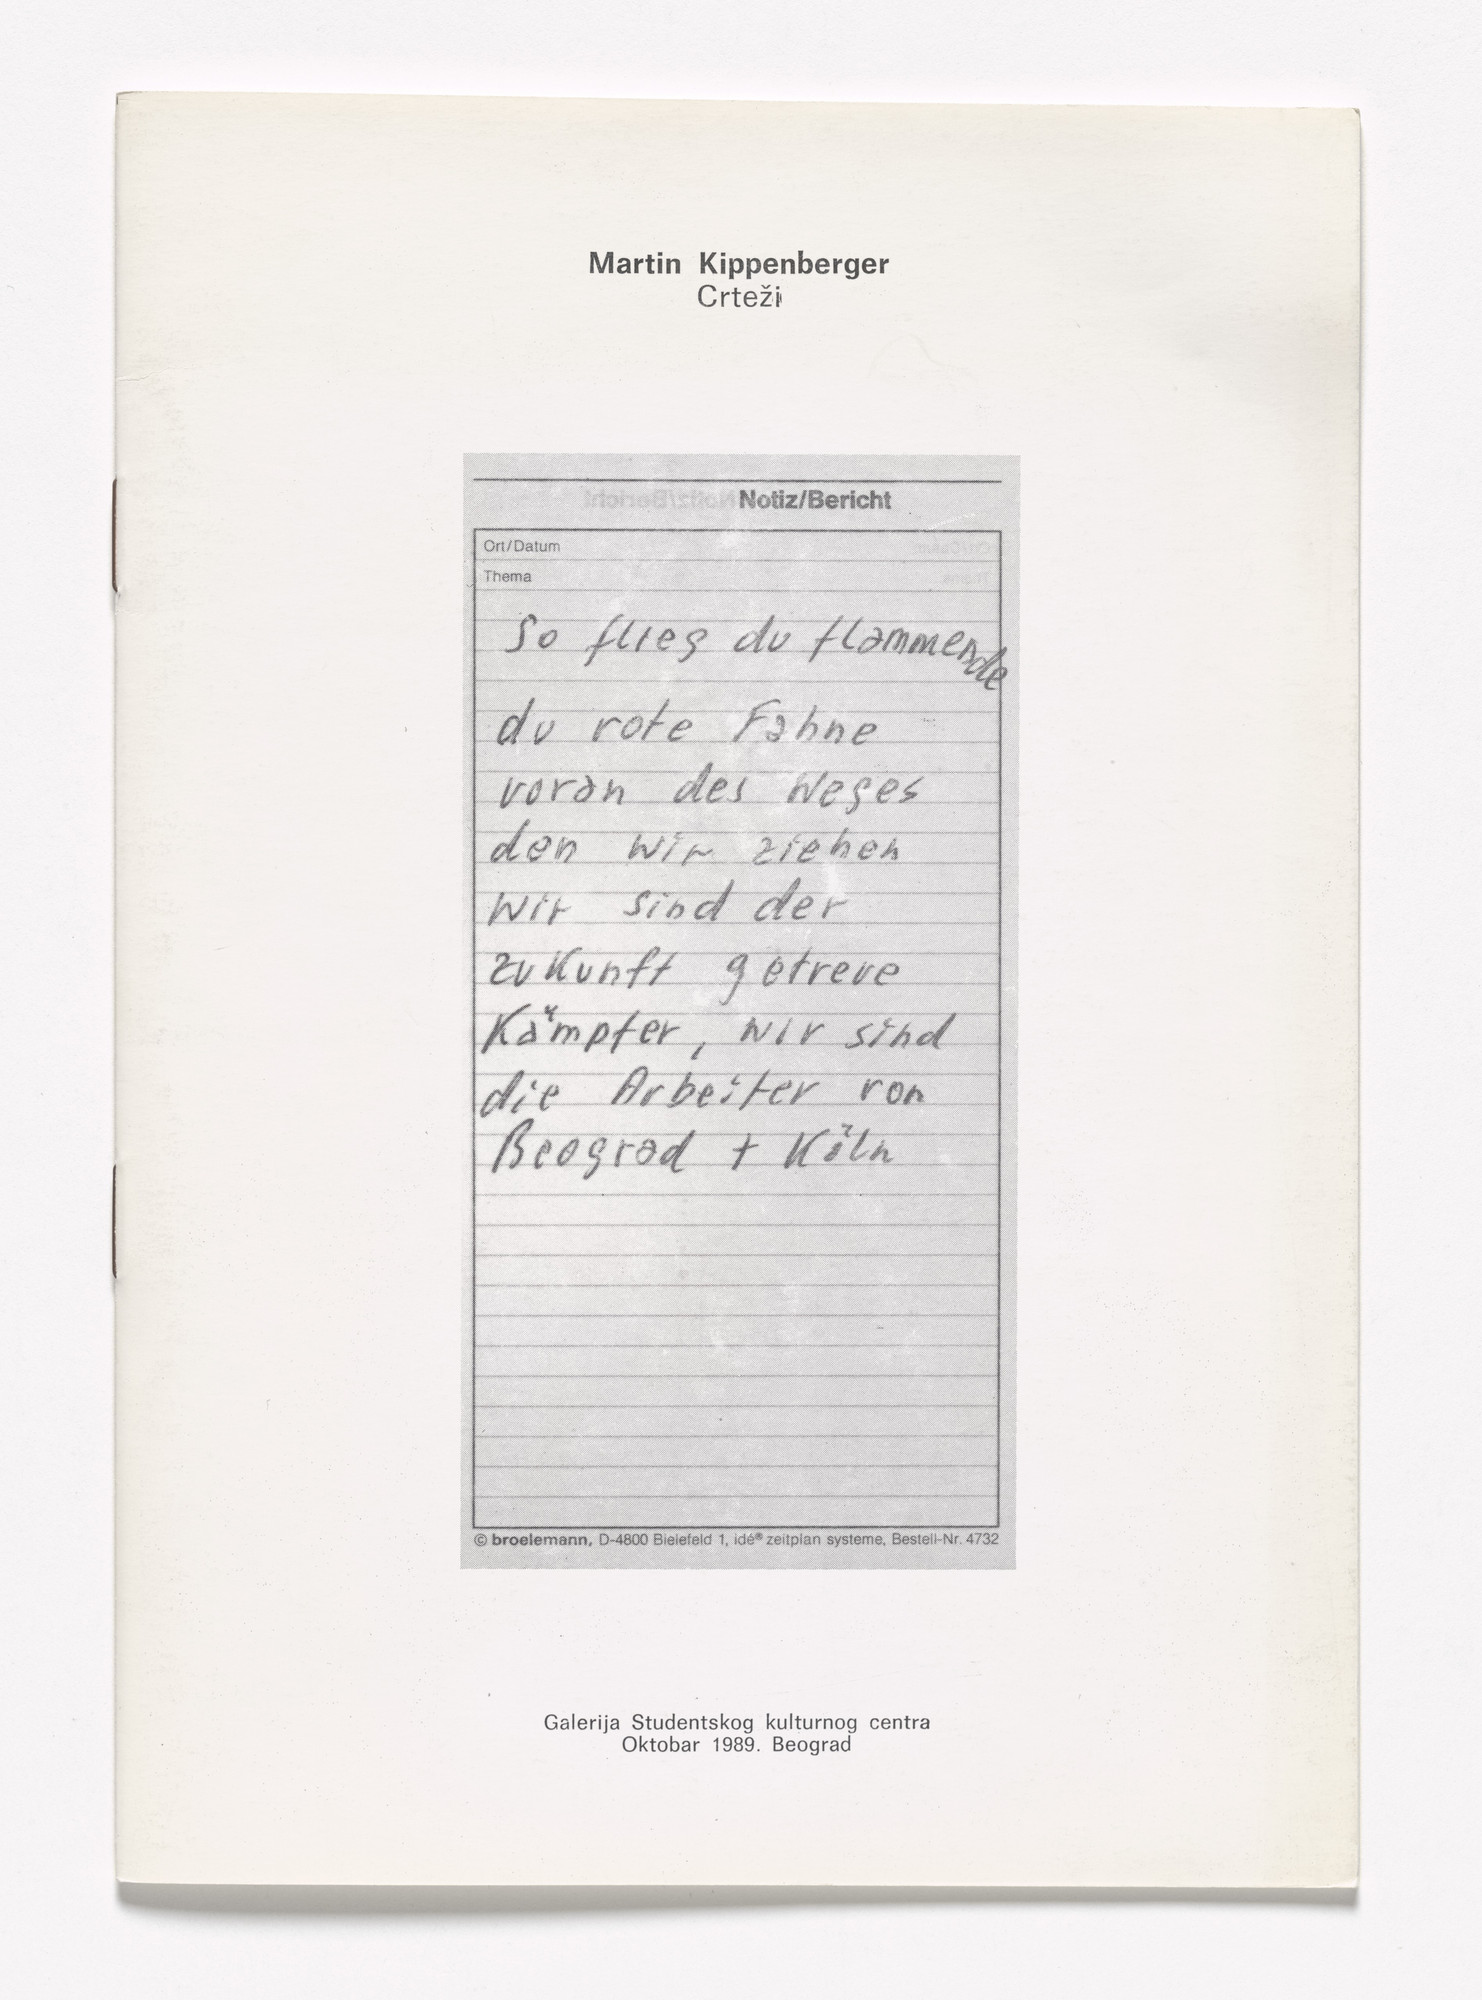 Martin Kippenberger
Crteži
Notiz/Bericht
Ort/Datum
Thema
So flieg du flammende
du rote Fahne
voran des Weges
den wir ziehen
wir sind der
zukunft getreue
Kämpfer, wir sind
die Arbeiter von
Beograd + Köln
© broelemann, D-4800 Bielefeld 1, idé® zeitplan systeme, Bestell-Nr. 4732
Galerija Studentskog kulturnog centra
Oktobar 1989. Beograd